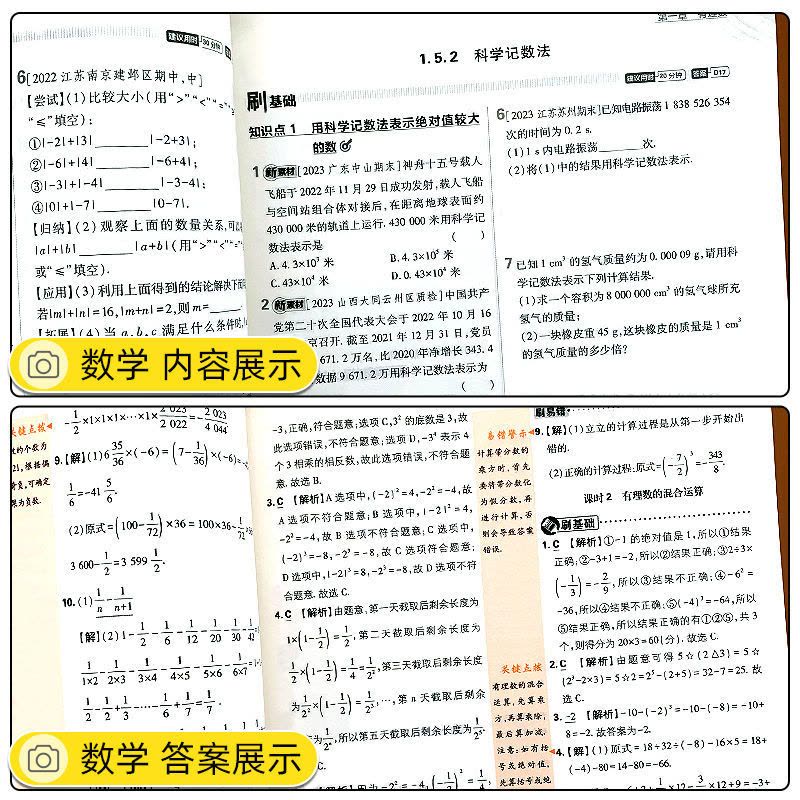 建议用时 30分钟
6[2022 江苏南京建邺区期中,中]
【尝试】(1)比较大小(用“>”“<”“=”
“≤”填空):
①|-2|+|3|________|-2+3|;
②|-6|+|4|________|-6+4|;
③|-3|+|-4|________|-3-4|;
④|0|+|-7|________|0-7|.
【归纳】(2)观察上面的数量关系,可
|a|+|b|________|a+b|(用“>”“<”“=”
或“≤”填空).
【应用】(3)利用上面得到的结论解决下
若|m|+|n|=16,|m+n|=2,则m=
【拓展】(4)当a,b,c满足什么条件时
第一章 有理数
1.5.2 科学记数法
建议用时 20分钟 答案 D17
刷基础
知识点1 用科学记数法表示绝对值较大
的数
1 新教材 [2023 广东中山期末]神舟十五号载人
飞船于2022年11月29日成功发射,载人飞船
与空间站组合体对接后,在距离地球表面约
430 000米的轨道上运行.430 000米用科学记
数法表示是 ( )
A.4.3×10⁵米 B.4.3×10⁵米
C.43×10⁴米 D.0.43×10⁴米
2 新教材 [2023 山西大同云州区质检]中国共产
党第二十次全国代表大会于2022年10月16
京召开.截至2021年12月31日,党员
671.2万名,比2020年净增长343.4
数据9 671.2万用科学记数法表示为
( )
6[2023 江苏苏州期末]已知电路振荡1 838 526 354
次的时间为0.2 s.
(1)1 s内电路振荡________次.
(2)将(1)中的结果用科学记数法表示.
7 已知1 cm³的氢气质量约为0.000 09 g,请用科
学记数法表示下列计算结果.
(1)求一个容积为8 000 000 cm³的氢气球所充
氢气的质量;
(2)一块橡皮重45 g,这块橡皮的质量是1 cm³
的氢气质量的多少倍?
数学 内容展示
关键点拨
的个数为
21,根据偶
负,可确定
果为负数.
-1/2×1×1×1×…×1×2 023/2 022=-2 023/4 044
9.【解】(1)6 35/36×(-6)=(7-1/36)×(-6)=
1/6=-41 5/6.
(2)原式=(100-1/72)×36=100×36-1/72
3 600-1/2=3 599 1/2.
10.(1)1/n-1/(n+1)
【解】(2)1-1/2-1/6-1/12-1/20-1/30-1/42
1/(1×2)-1/(2×3)-1/(3×4)-1/(4×5)-1/(5×6)-1/(6×7)=
1/2-1/2+1/3-……-1/6+1/7=1/7.
-3,正确,符合题意;选项C,3²的底数是3,故
此选项错误,不符合题意;选项D,-3⁴表示4
个3相乘的相反数,故此选项错误,不符合题
意.故选B.
3.C 【解析】A选项中,(-2)²=4,-2²=-4,故
A选项不符合题意;B选项中,|-2|²=4,
-2²=-4,故B选项不符合题意;C选项中,
(-2)³=-8,-2³=-8,故C选项符合题意;
D选项中,|-2|³=8,-2³=-8,故D选项不符
合题意.故选C.
4.C 【解析】由题意,第一天截取后剩余长度为
1×(1-1/2)=1/2,第二天截取后剩余长度为
1/2×(1-1/2)=1/4=1/2²,第三天截取后剩余长度
为1/2²×(1-1/2)=1/2³,…,第n天截取后剩余
度为1/2ⁿ,所以第五天截取后剩余长度为1/2⁵.
易错警示
计算带分数的
乘方时,首先
要将带分数化
为假分数,再
进行计算,否
则会导致答案
错误.
关键点拨
有理数的混合
运算,先算乘
方,再算乘除,
最后算加减.
注意:如有括
号或绝对值,
先算括号或绝
刷易错
9.【解】(1)立立的计算过程是从第一步开始出
错的.
(2)正确的计算过程:原式=(-7/2)³=-343/8.
课时2 有理数的混合运算
刷基础
1.C 【解析】①-1的绝对值是1,所以①结果
正确;②-3+1=-2,所以②结果正确;③2÷3×
(-1/3)=-2/9,所以③结果不正确;④-6²=
-36,所以④结果不正确;⑤(-4)³=-64,所以
⑤结果正确,所以结果正确的有①②⑤,共3
个,则得分为20×3=60(分).故选C.
2.C 【解析】由题意可得5☆(2△3)=5☆
(2³-2×3)=5☆2=2⁵-(2+5)=32-7=25.故
选C.
3.-2 【解析】-10-(-2)³=-10-(-8)=-10+
8=-2.故答案为-2.
4.【解】(1)原式=18÷32÷(-8)-16×5=18+
(-4)-80=14-80=-66.
数学 答案展示